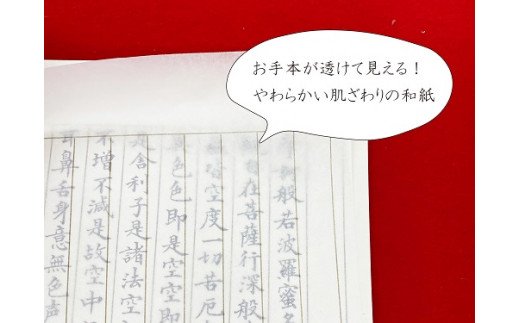 お手本が透けて見える!
やわらかい肌ざわりの和紙
般若波羅蜜多
在菩薩行深般
空度一切苦厄
色色即是空空即
是舎利子是諸法空
不増不減是故空中
耳鼻舌身意無色声